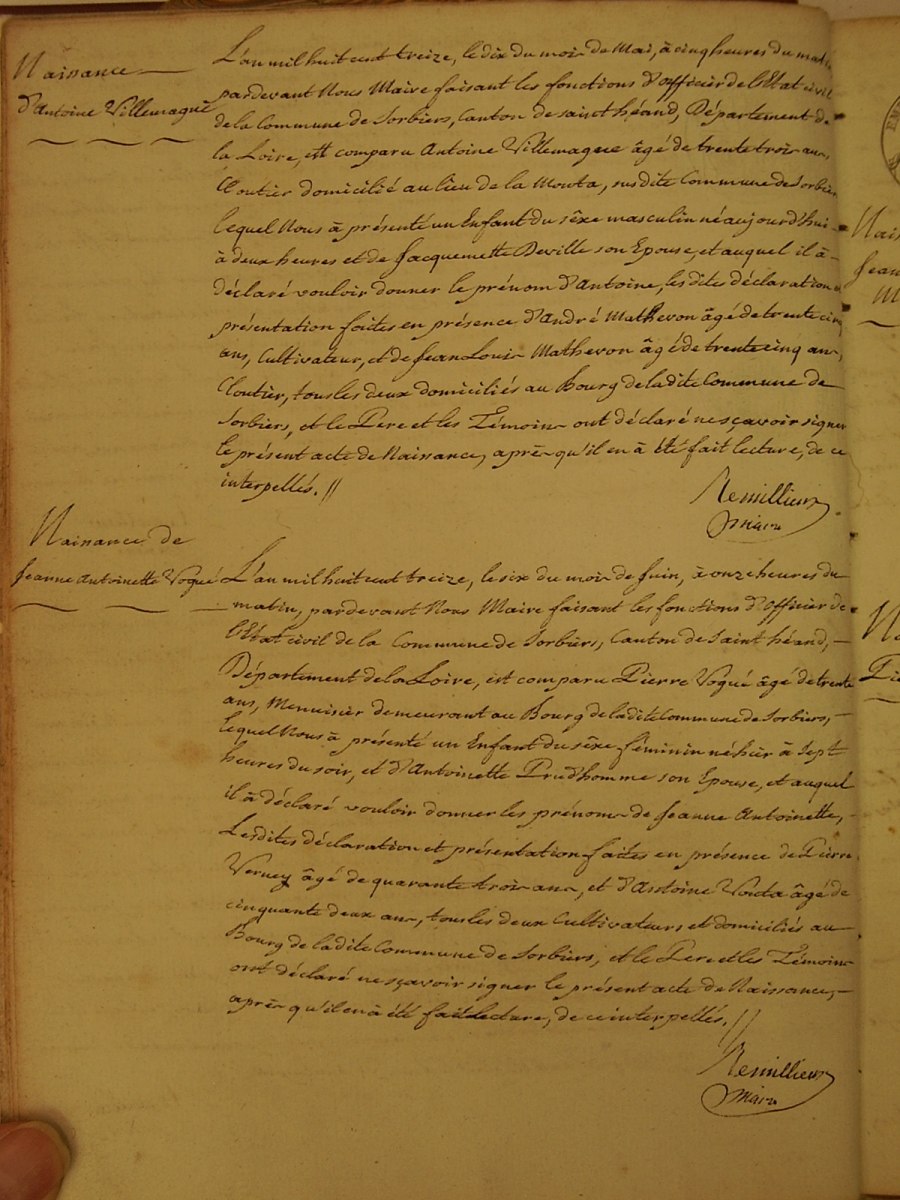 Naissance
d'Antoine Villemagne
L'an mil huit cent treize, le dix du mois de Mai, à cinq heures du matin
pardevant Nous Maire faisant les fonctions d'officier de l'Etat civil
de la Commune de Sorbiers, Canton de saint héand, Département de
la Loire, est comparu Antoine Villemagne âgé de trente trois ans,
Cloutier domicilié au lieu de la Monta, susdite Commune de Sorbiers
lequel Nous à présenté un Enfant du sêxe masculin né aujourd'hui
à deux heures et de Jacquemette Deville son Epouse, et auquel il à
déclaré vouloir donner le prénom d'Antoine, les dites déclaration et
présentation faites en présence d'André Mathevon âgé de trente cinq
ans, Cultivateur, et de Jean Louis Mathevon âgé de trente cinq ans,
Cloutier, tous les deux domiciliés au Bourg de la dite Commune de
Sorbiers, et le Pere et les Témoins ont déclaré ne sçavoir signer
le présent acte de Naissance, après qu'il en à été fait lecture, de ce
interpellés. //
Remillieux
maire
Naissance de
Jeanne Antoinette Vogué
L'an mil huit cent treize, le six du mois de Juin, à onze heures du
matin, pardevant Nous Maire faisant les fonctions d'officier de
l'Etat civil de la Commune de Sorbiers, Canton de Saint héand,
Département de la Loire, est comparu Pierre Vogué âgé de trente
ans, Menuisier demeurant au Bourg de la dite Commune de Sorbiers,
lequel Nous à présenté un Enfant du sêxe féminin né hier à Sept
heures du soir, et d'Antoinette Prud'homme son Epouse, et auquel
il à déclaré vouloir donner les prénoms de Jeanne Antoinette,
Lesdites déclaration et présentation faites en présence de Pierre
Verney âgé de quarante trois ans, et d'Antoine Vouta âgé de
cinquante deux ans, tous les deux Cultivateurs et domiciliés au
Bourg de la dite Commune de Sorbiers, et le Pere et les Témoins
ont déclaré ne sçavoir signer le présent acte de Naissance,
après qu'il en à été fait lecture, de ce interpellés. //
Remillieux
maire